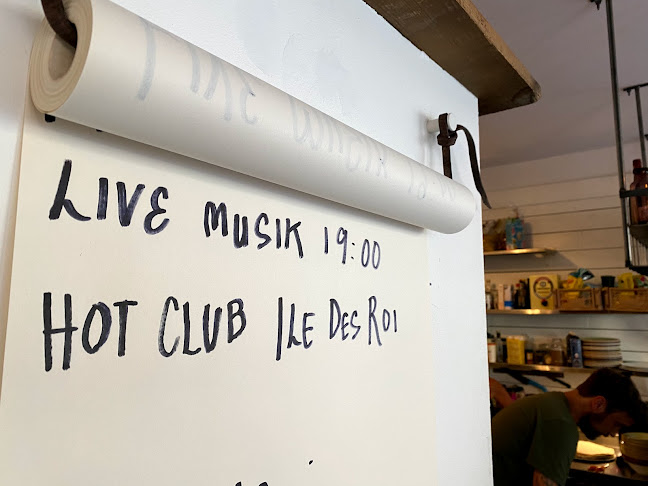 LIVE MUSIK 19:00
HOT CLUB ILE DES ROI